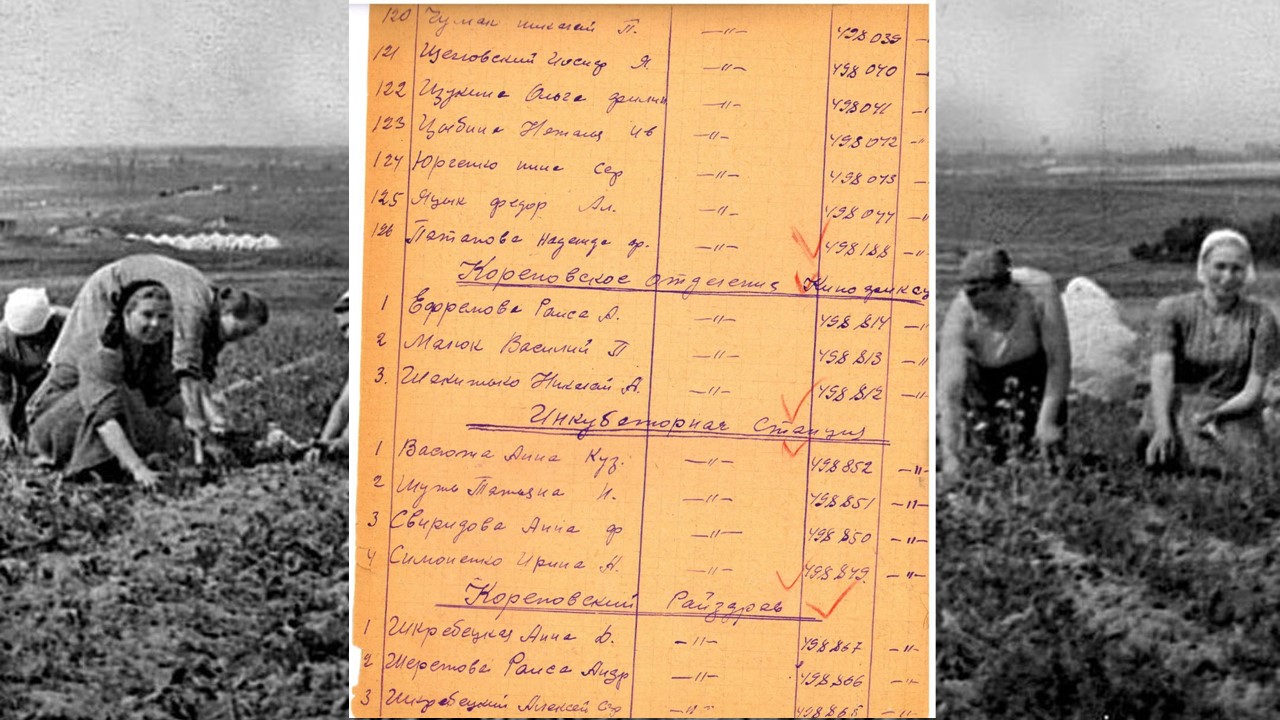 120 Чуман Николай П. —"— 498039 —
121 Щегловский Иосиф Я. —"— 498040 —
122 Щукина Ольга —"— 498041 —"
123 Цыбина Наталя Ив —"— 498042 —"
124 Юрченко Нина Сер —"— 498043 —
125 Языык Федор Ал. —"— 498044 —"
126 Патапова Надежда Ф. —"— 498188 —"
Кореновское отделения
1 Ефремова Раиса А. —"— 498814 —"
2 Василий П —"— 498813 —"
3. Николай А. —"— 498812 —"
Инкубаторная Станция
1 Васюта Анна Куз. —"— 498852 —"—
2 Шуть Татьяна И. —"— 498851 —"—
3 Свиридова Анна Ф —"— 498850 —"—
4 Симоненко Ирина Н. —"— 498849. —"—
Кореновский Райздрав
1 Шкребецкая Анна Д. —"— 498867 —"—
2 Шеремова Раиса Андр —"— 498866 —"—
3 Шкребецкий Алексей —"— 498865 —"—